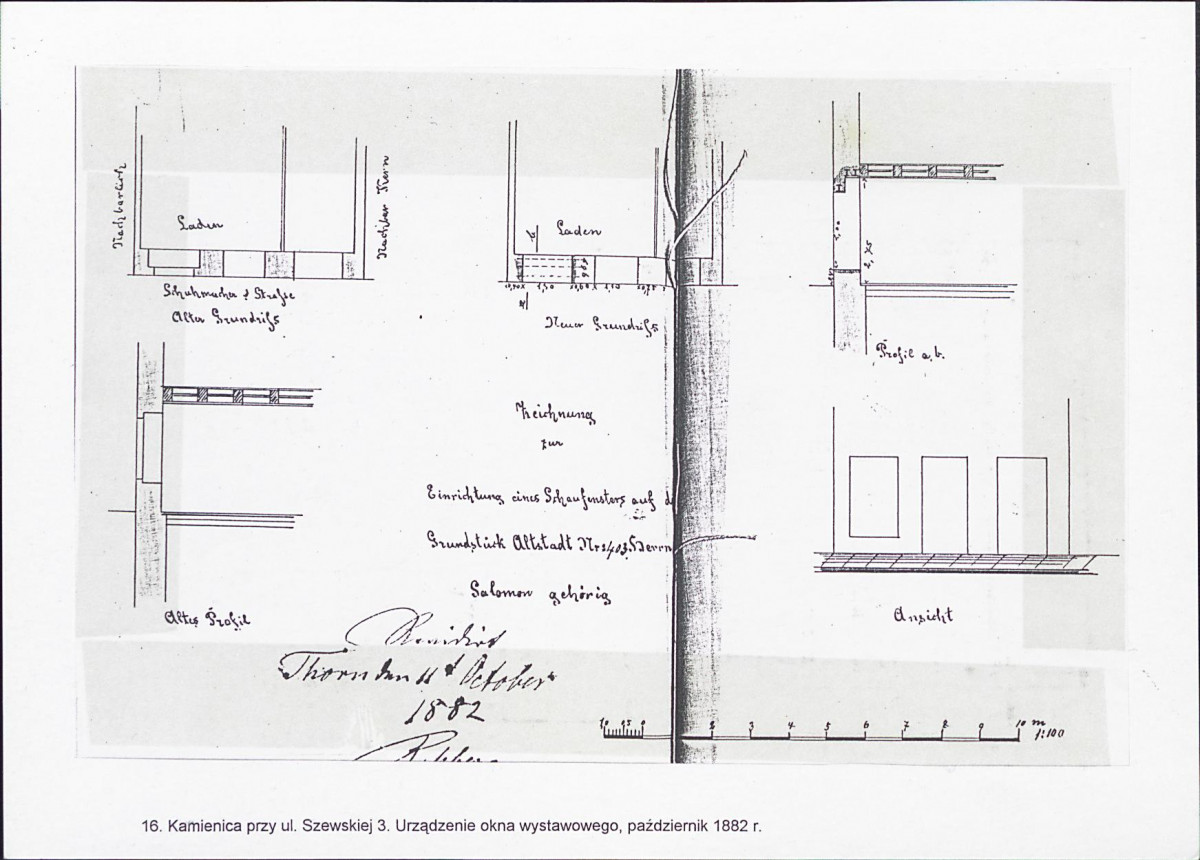 Laden
Nachbar Kern
Schuhmacher Straße
Alter Grundriß
Laden
1,50
Neuer Grundriß
Profil a. b.
Altes Profil
Zeichnung
zur
Einrichtung eines Schaufensters auf d
Grundstück Altstadt Nrs 403. Herrn
Salomon gehörig
Ansicht
Revidirt
Thorn den 11t October
1882
2 3 4 5 6 7 8 9 10 m
1:100
16. Kamienica przy ul. Szewskiej 3. Urządzenie okna wystawowego, październik 1882 r.